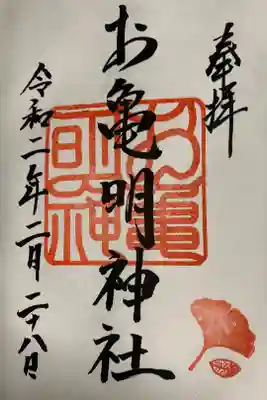 奉拝
お亀明神社
令和二年二月二十八日